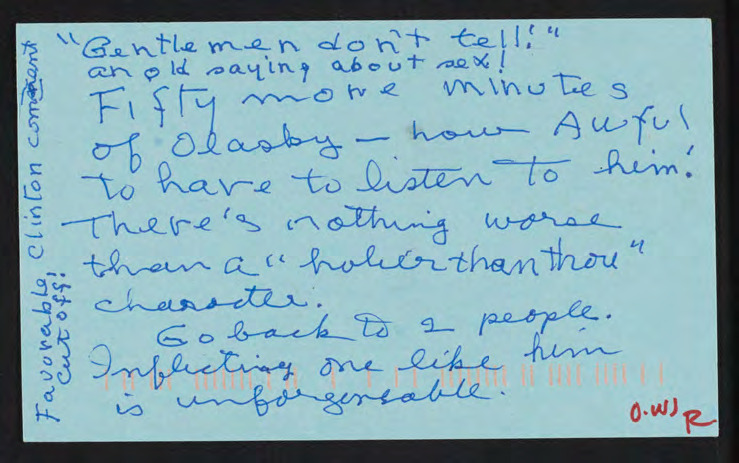 "Gentlemen don't tell!"
an old saying about sex!
Fifty more minutes
of Olasby — how Awful
to have to listen to him!
There's nothing worse
than a "holier than thou"
character.
Go back to 2 people.
Inflicting one like him
is unforgenable.
Favorable Clinton comment
cut off!
O.WJ
R